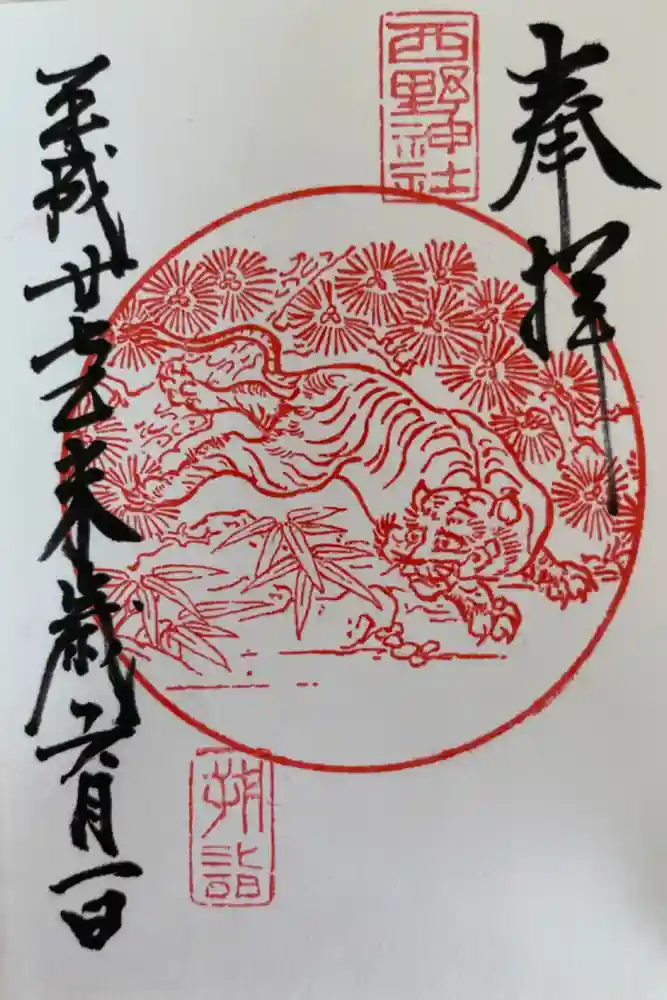 奉拝
西野神社
朔詣
平成廿七乙未歳六月一日